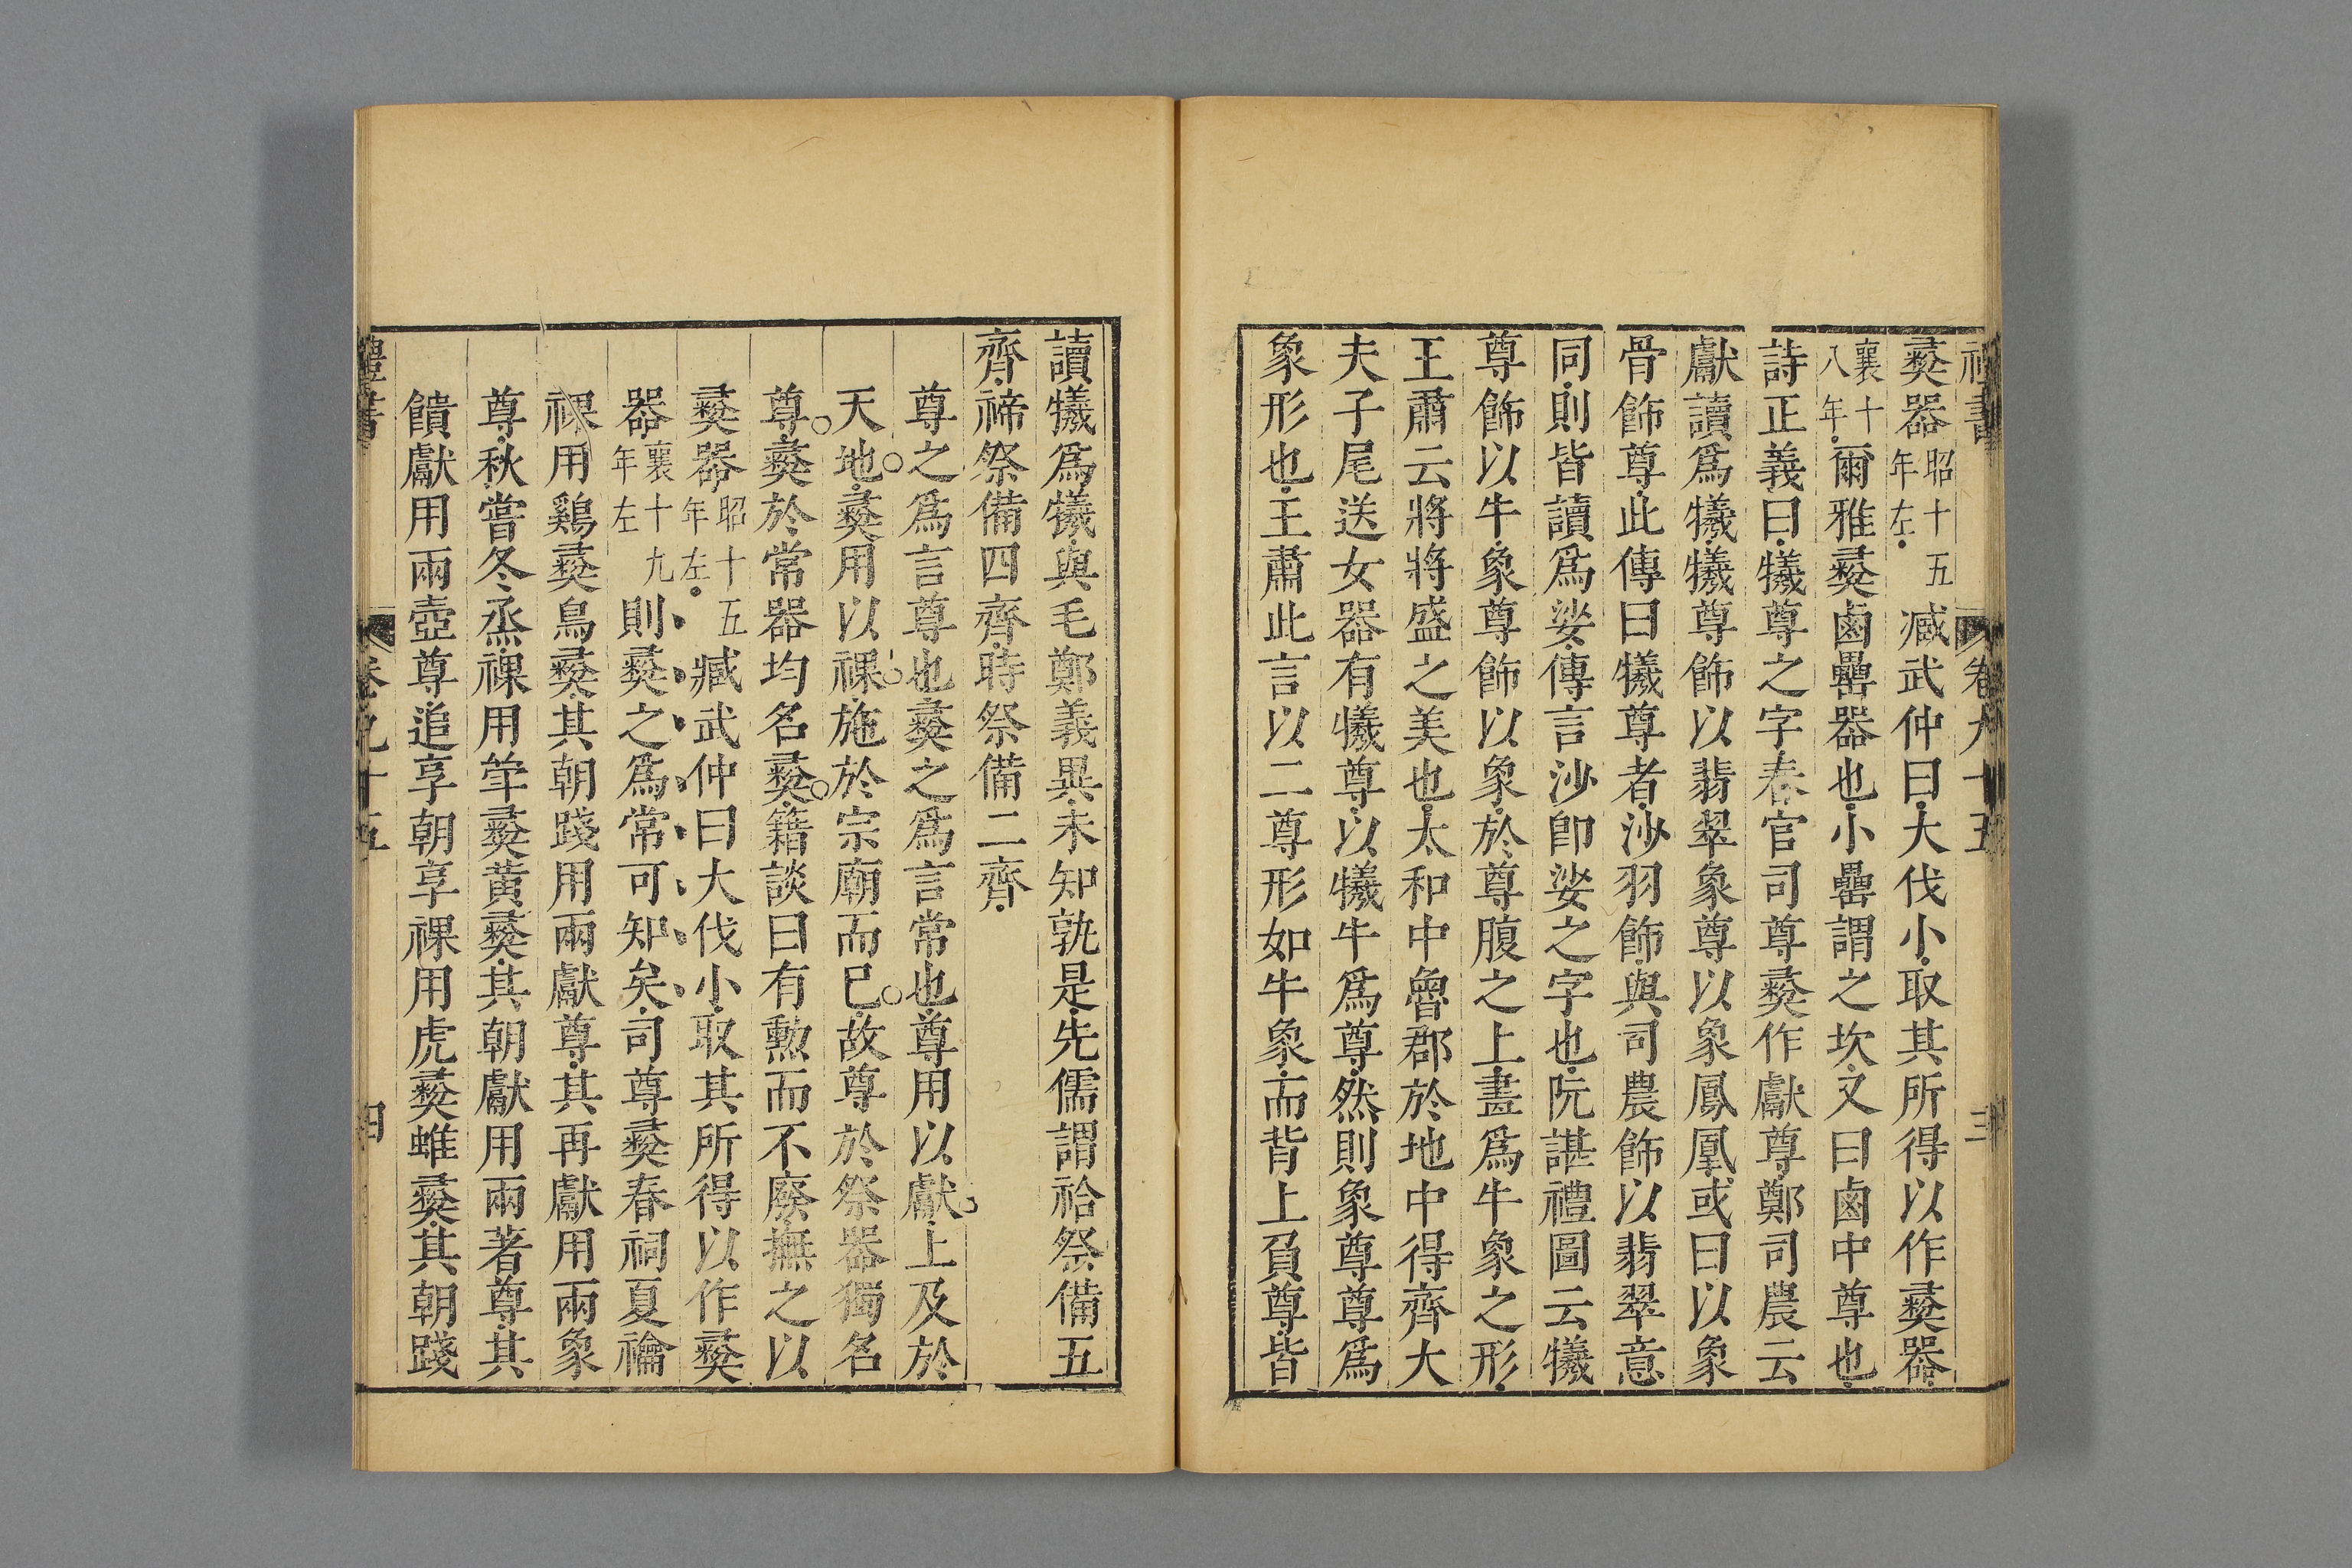 彛器昭十五年左臧武仲曰大伐小取其所得以作彛器
襄十八年爾雅彛卣罍器也小罍謂之坎又曰卣中尊也
詩正義曰犧尊之字春官司尊彛作獻尊鄭司農云
獻讀爲犧犧尊飾以翡翠象尊以象鳳凰或曰以象
骨飾尊此傳曰犧尊者沙羽飾與司農飾以翡翠意
同則皆讀爲娑傳言沙卽娑之字也阮諶禮圖云犧
尊飾以牛象尊飾以象於尊腹之上畫爲牛象之形
王肅云將將盛之美也太和中魯郡於地中得齊大
夫子尾送女器有犧尊以犧牛爲尊然則象尊尊爲
象形也王肅此言以二尊形如牛象而背上負尊皆
讀犧爲犧與毛鄭義異未知孰是先儒謂祫祭備五
齊禘祭備四齊時祭備二齊
尊之爲言尊也彛之爲言常也尊用以獻上及於
天地彛用以祼施於宗廟而已故尊於祭器獨名
尊彛於常器均名彛籍談曰有勲而不廢撫之以
彛器昭十五年左臧武仲曰大伐小取其所得以作彛
器襄十九年左則彛之爲常可知矣司尊彛春祠夏禴
祼用鷄彛鳥彛其朝踐用兩獻尊其再獻用兩象
尊秋嘗冬烝祼用斝彛黃彛其朝獻用兩著尊其
饋獻用兩壺尊追享朝享祼用虎彛蜼彛其朝踐
禮書 卷九十五 四